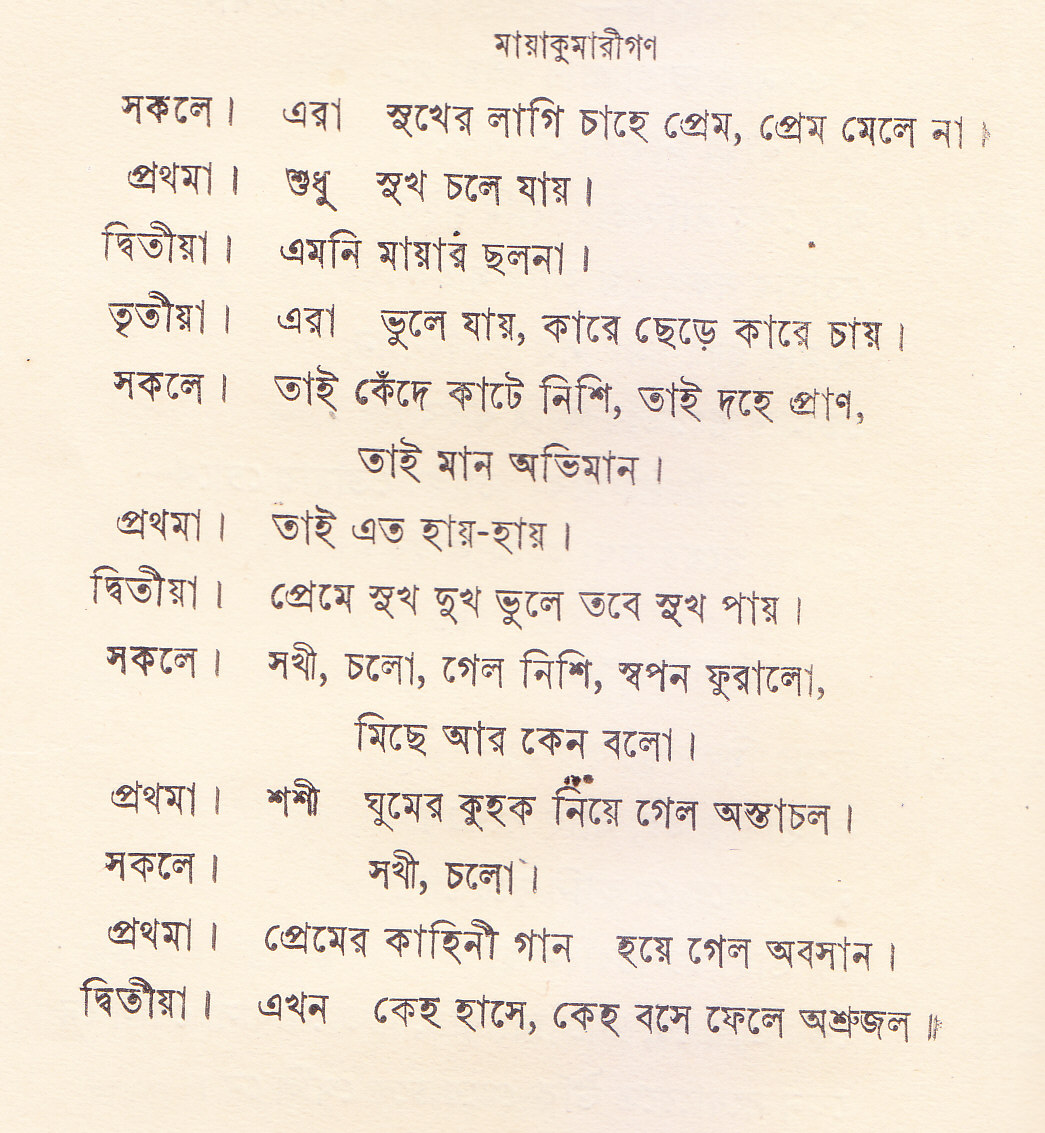 মায়াকুমারীগণ
সকলে। এরা সুখের লাগি চাহে প্রেম, প্রেম মেলে না।
প্রথমা। শুধু সুখ চলে যায়।
দ্বিতীয়া। এমনি মায়ার ছলনা।
তৃতীয়া। এরা ভুলে যায়, কারে ছেড়ে কারে চায়।
সকলে। তাই কেঁদে কাটে নিশি, তাই দহে প্রাণ,
তাই মান অভিমান।
প্রথমা। তাই এত হায়-হায়।
দ্বিতীয়া। প্রেমে সুখ দুখ ভুলে তবে সুখ পায়।
সকলে। সখী, চলো, গেল নিশি, স্বপন ফুরালো,
মিছে আর কেন বলো।
প্রথমা। শশী ঘুমের কুহক নিয়ে গেল অস্তাচল।
সকলে। সখী, চলো।
প্রথমা। প্রেমের কাহিনী গান হয়ে গেল অবসান।
দ্বিতীয়া। এখন কেহ হাসে, কেহ বসে ফেলে অশ্রুজল॥